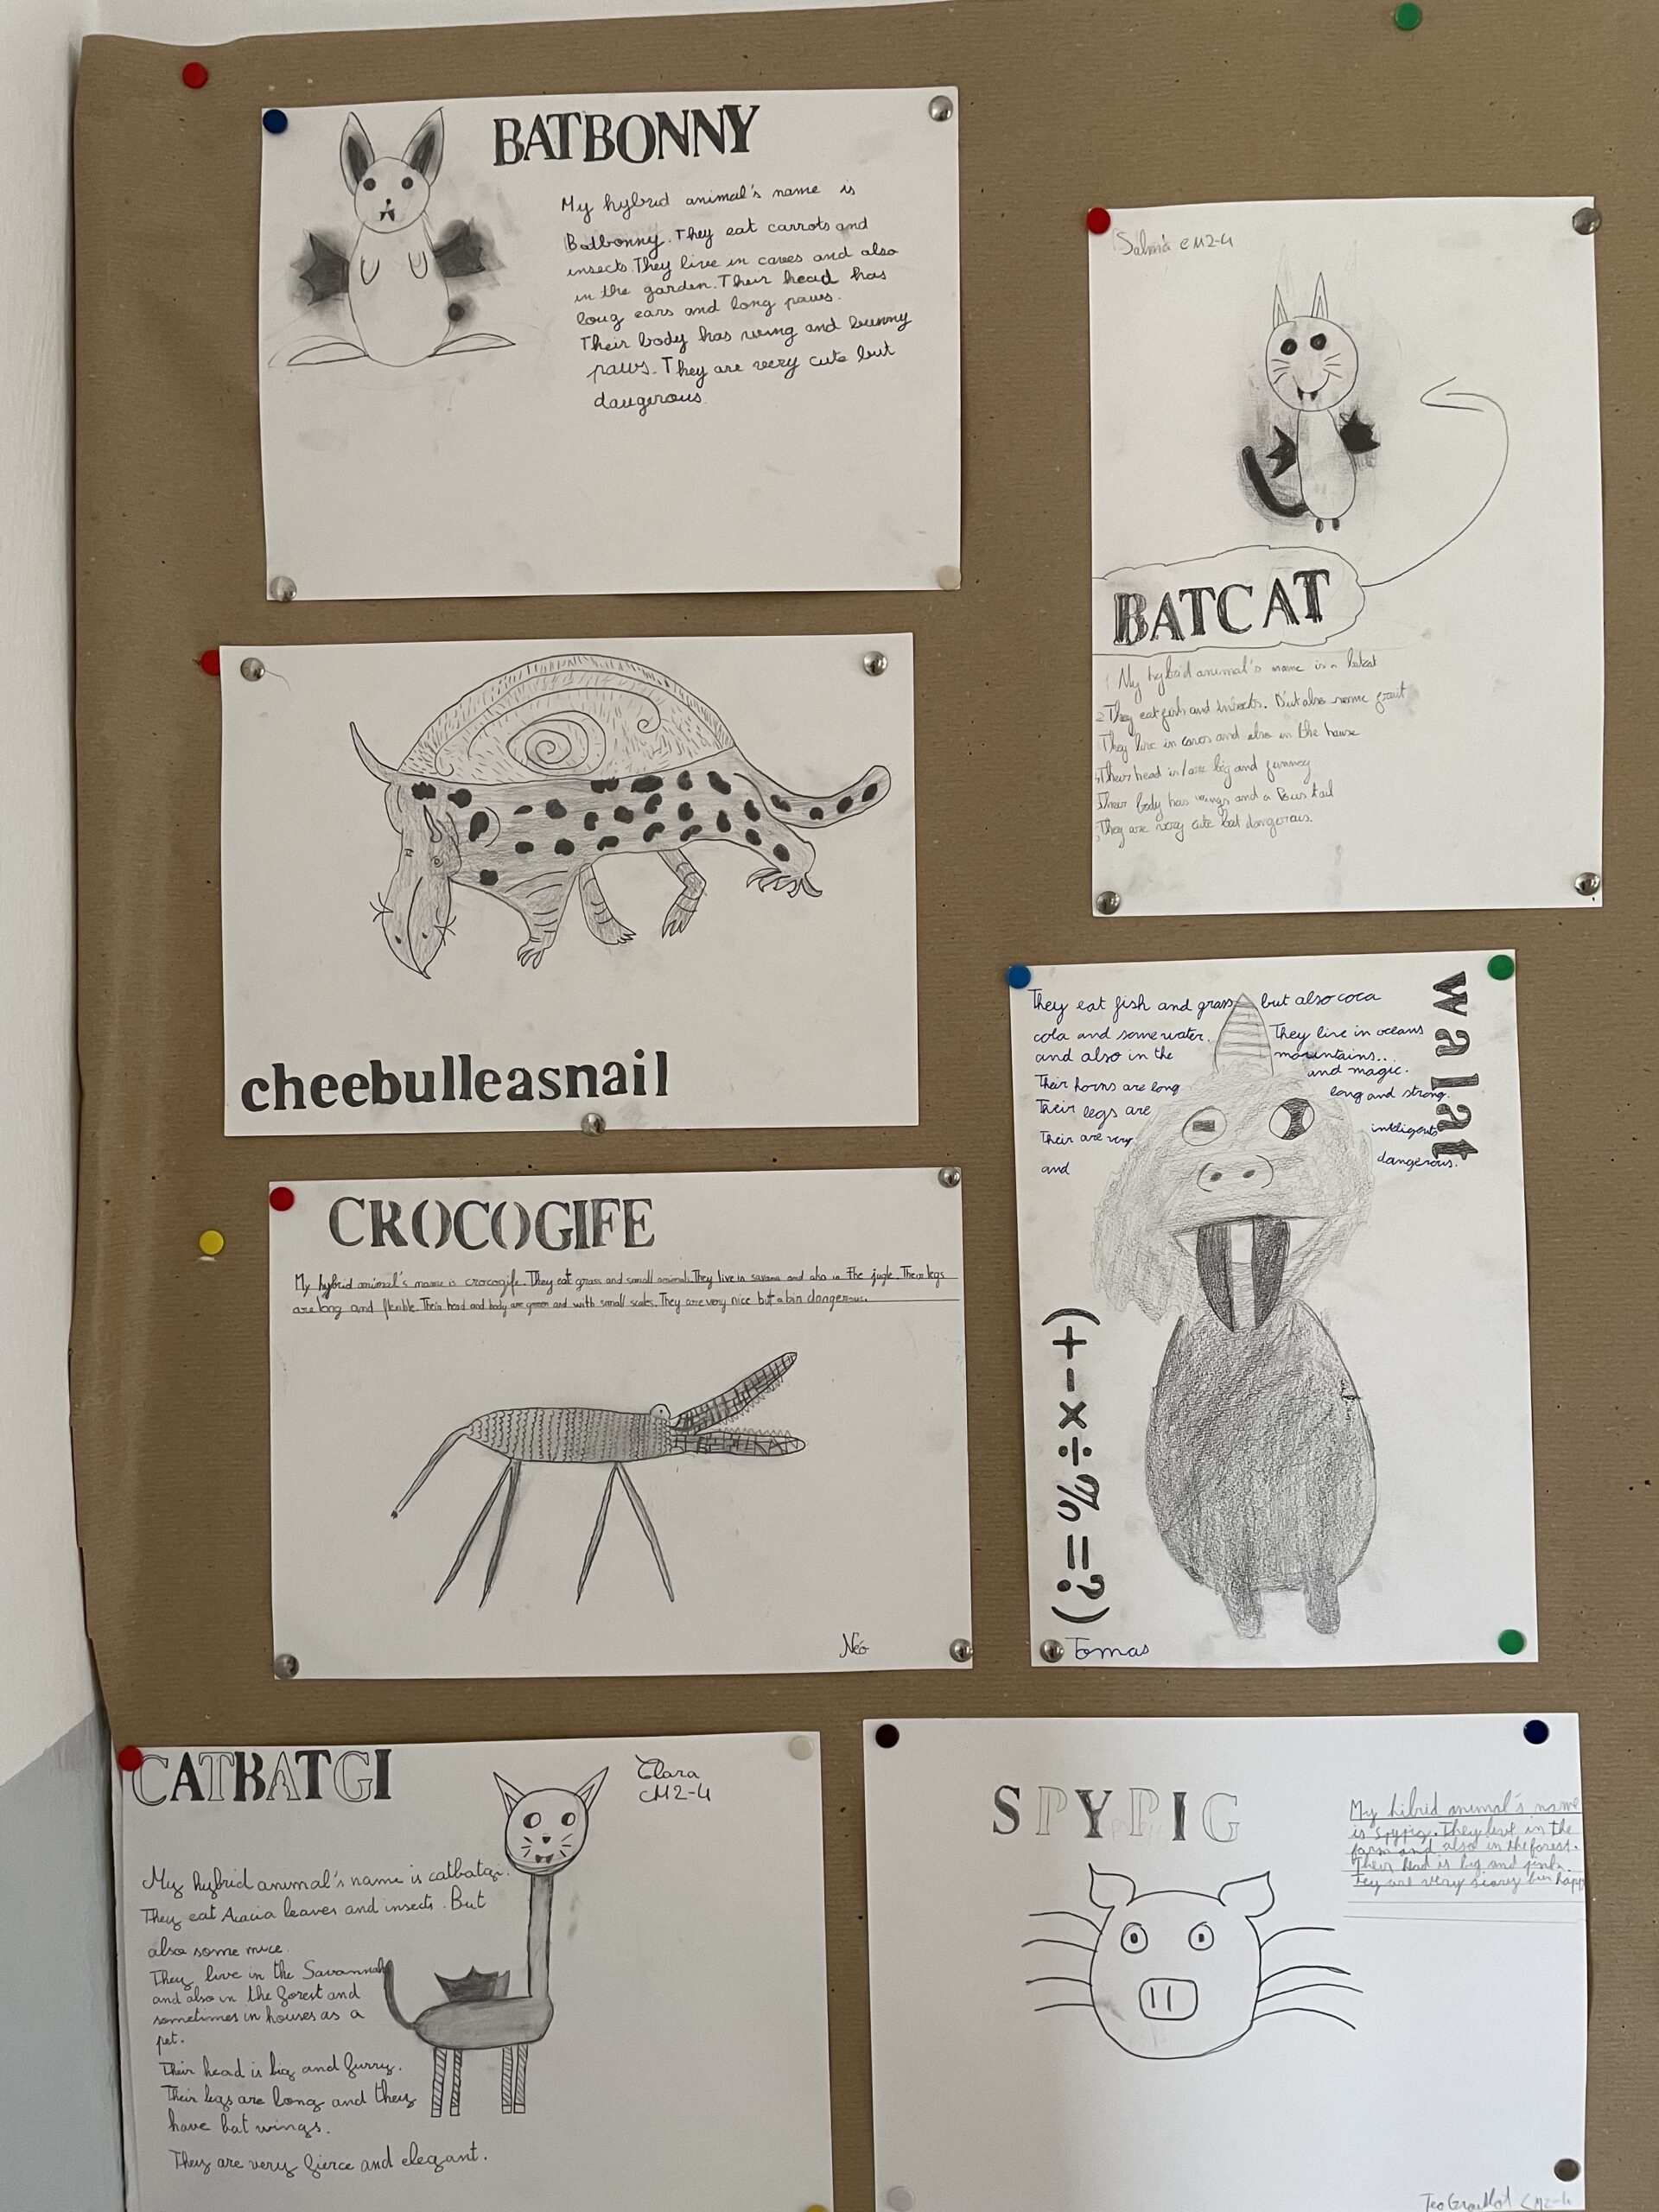 BATBONNY
My hybrid animal's name is
Batbonny. They eat carrots and
insects. They live in caves and also
in the garden. Their head has
long ears and long paws.
Their body has wing and bunny
paws. They are very cute but
dangerous.
Salma CM2-4
BATCAT
My hybrid animal's name is a batcat
2 They eat fish and insects. But also some fruit
They live in caves and also in the house
Their head is/are big and funny
Their body has wings and a tail
They are very cute but dangerous.
cheebulleasnail
walat
They eat fish and grass but also coca
cola and some water. They live in oceans
and also in the mountains...
Their horns are long and magic.
Their legs are long and strong.
Their are very intiligents
and dangerous.
(+-x÷%=?)
Tomas
CROCOGIFE
My hybrid animal's name is crocogife. They eat grass and small animals. They live in savana and also in the jugle. Their legs
are long and flexable. Their head and body are green and with small scales. They are very nice but a bin dangerous.
Néo
CATBATGI
Clara
CM2-4
My hybrid animal's name is catbatgi.
They eat Acacia leaves and insects. But
also some mice.
They live in the Savannah
and also in the forest and
sometimes in houses as a
pet.
Their head is big and furry.
Their legs are long and they
have bat wings.
They are very fierce and elegant.
SPYPIG
My hibrid animal's name
is spypig. They live in the
farm and also in the forest.
Their head is big and pink.
Tey are very scary but happy
Teo CM2-4